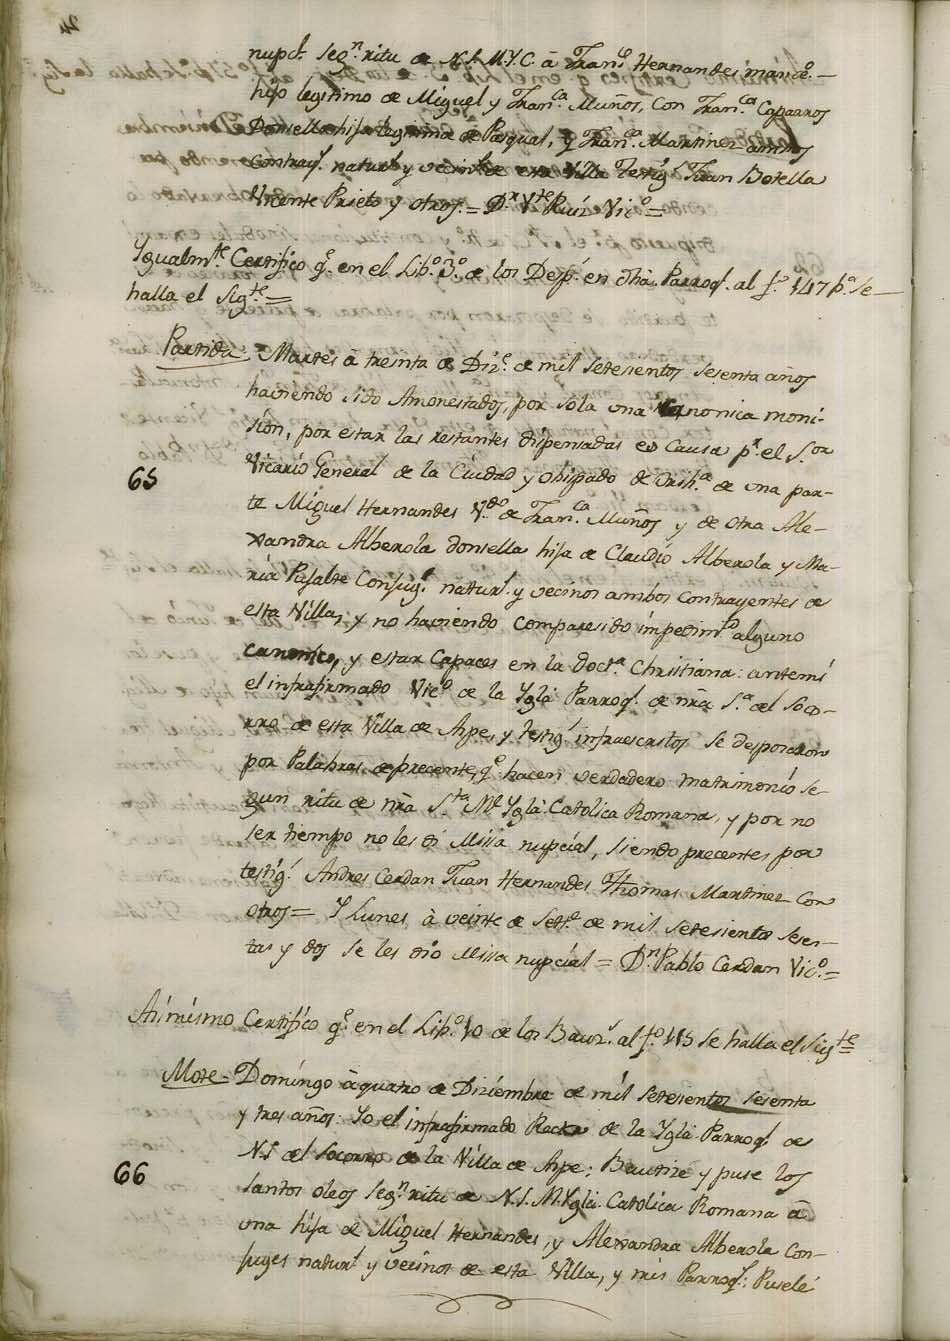 nupc.l seg.n ritu de N.S.M.Y.C. â Fran.co Hernandes mansevo
hijo legitimo de Miguel y Fran.ca Muños, con Fran.ca Caparros
Donsella hija legitima de Pasqual, y Fran.ca Martinez ambos
contray.s natur.s y vecin.s de esta Villa Testig.s Fran Botella
Vicente Prieto y otros.= D.r V.te Ruiz Vic.o=
Ygualm.te Certifico q.e en el Lib.o 3.o de los Desp.s en dha. Parroq.l al f.o 147 p.a se
halla el Sig.te=
Partida. Martes â treinta de Diz.e de mil setesientos sesenta años
haviendo sido Amonestados, por sola una canonica moni-
sion, por estar las restantes dispensadas ex causa p.r el S.or
Vicario General de la Ciudad y obispado de Orih.a de una par-
te Miguel Hernandes V.do de Fran.ca Muños y de otra Ale-
xandra Alberola donsella hija de Claudio Alberola y Ma-
ria Pujalte Consug.s natur.s y vecinos ambos contrayentes de
esta Villa, y no haviendo comparesido impedim.to alguno
canonico, y estar capaces en la doct.a Christiana: antemi
el infrafirmado Vic.o de la Ygla Parroq.l de nra S.a del Soco-
rro de esta Villa de Aspe, y testig.s infraescritos se desposaron
por Palabras de precente, q.e hacen verdadero matrimonio se-
gun ritu de nra S.ta M.e Ygla Catolica Romana, y por no
ser tiempo no les dí Missa nupcial, siendo precentes por
testig.s Andres Cerdan Juan Hernandes Thomas Martinez con
otros= Y Lunes à veinte de Set.e de mil setesientos sesen-
ta y dos se les dio Missa nupcial = D.n Pablo Cerdan Vic.o=
65
Asimismo Certifico q.e en el Lib.o 10 de los Baut.s al f.o 115 se halla el Sig.te
Mote= Domingo â quatro de Diziembre de mil setesientos sesenta
y tres años: Yo el infrafirmado Rector de la Ygla Parroq.l de
N.S. del Socorro de la Villa de Aspe; Bautizé y puse los
santos oleos seg.n ritu de N.S.M. Ygla Catolica Romana â
una hija de Miguel Hernandes, y Alexandra Alberola Con-
suges natur.s y vecinos de esta Villa, y mis Parroq.s: Pusele
66